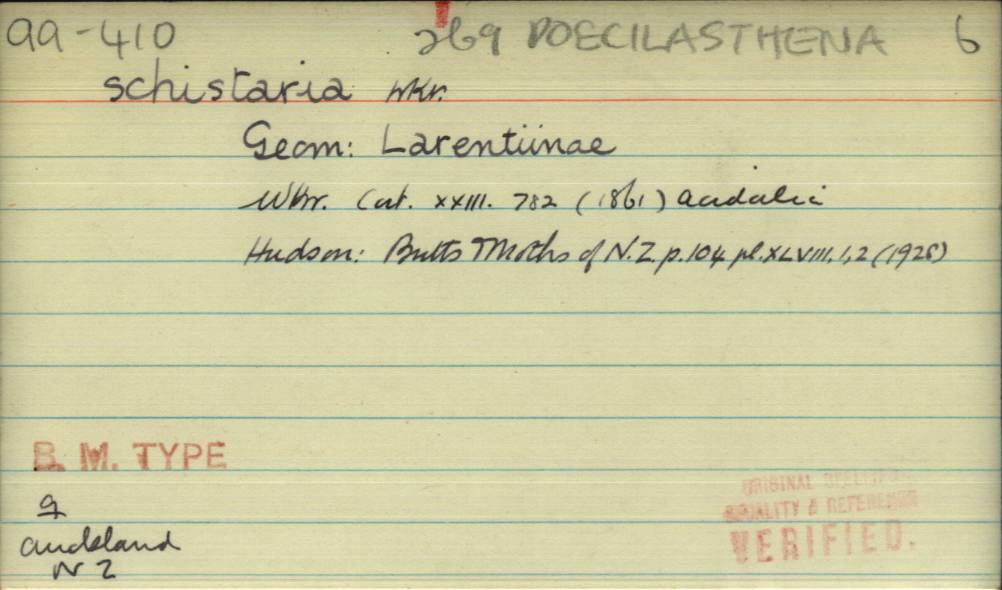 99-410 269 POECILASTHENA 6
schistaria Wkr.
Geom: Larentiinae
Wkr. Cat. XXIII. 782 (1861) Acidalia
Hudson: Butts Moths of N.Z. p.104 pl.XLVIII,1,2 (1928)
B. M. TYPE
ORIGINAL SPELLING
QUALITY & REFERENCE
VERIFIED.
♀
Auckland
NZ